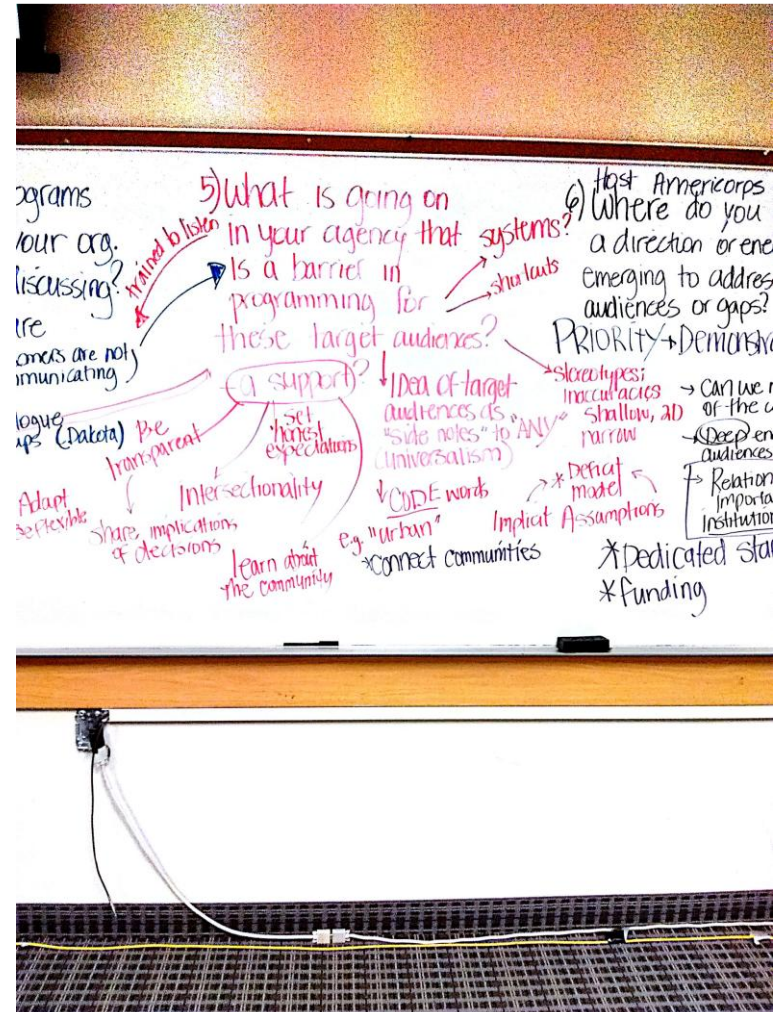 ograms
your org.
discussing?
are
omers are not
mmunicating
logue
ups (Dakota)
Adapt
Be flexible
trained to listen
5) What is going on
in your agency that systems?
Is a barrier in
programming for shortcuts
these target audiences?
a support?
Be
transparent
set
honest
expectations
Intersectionality
share implications
of decisions
learn about
the community
Idea of target
audiences as
"side notes" to "ANY"
(universalism)
CODE words
e.g. "urban"
*connect communities
Stereotypes;
Inaccuracies
shallow, 2D
narrow
* Deficit
model
Implicit Assumptions
Host Americorps
6) Where do you
a direction or ene
emerging to addres
audiences or gaps?
PRIORITY → Demonstra
→ Can we
of the
→ Deep en
audiences
→ Relation
Importa
institution
*Dedicated sta
*funding